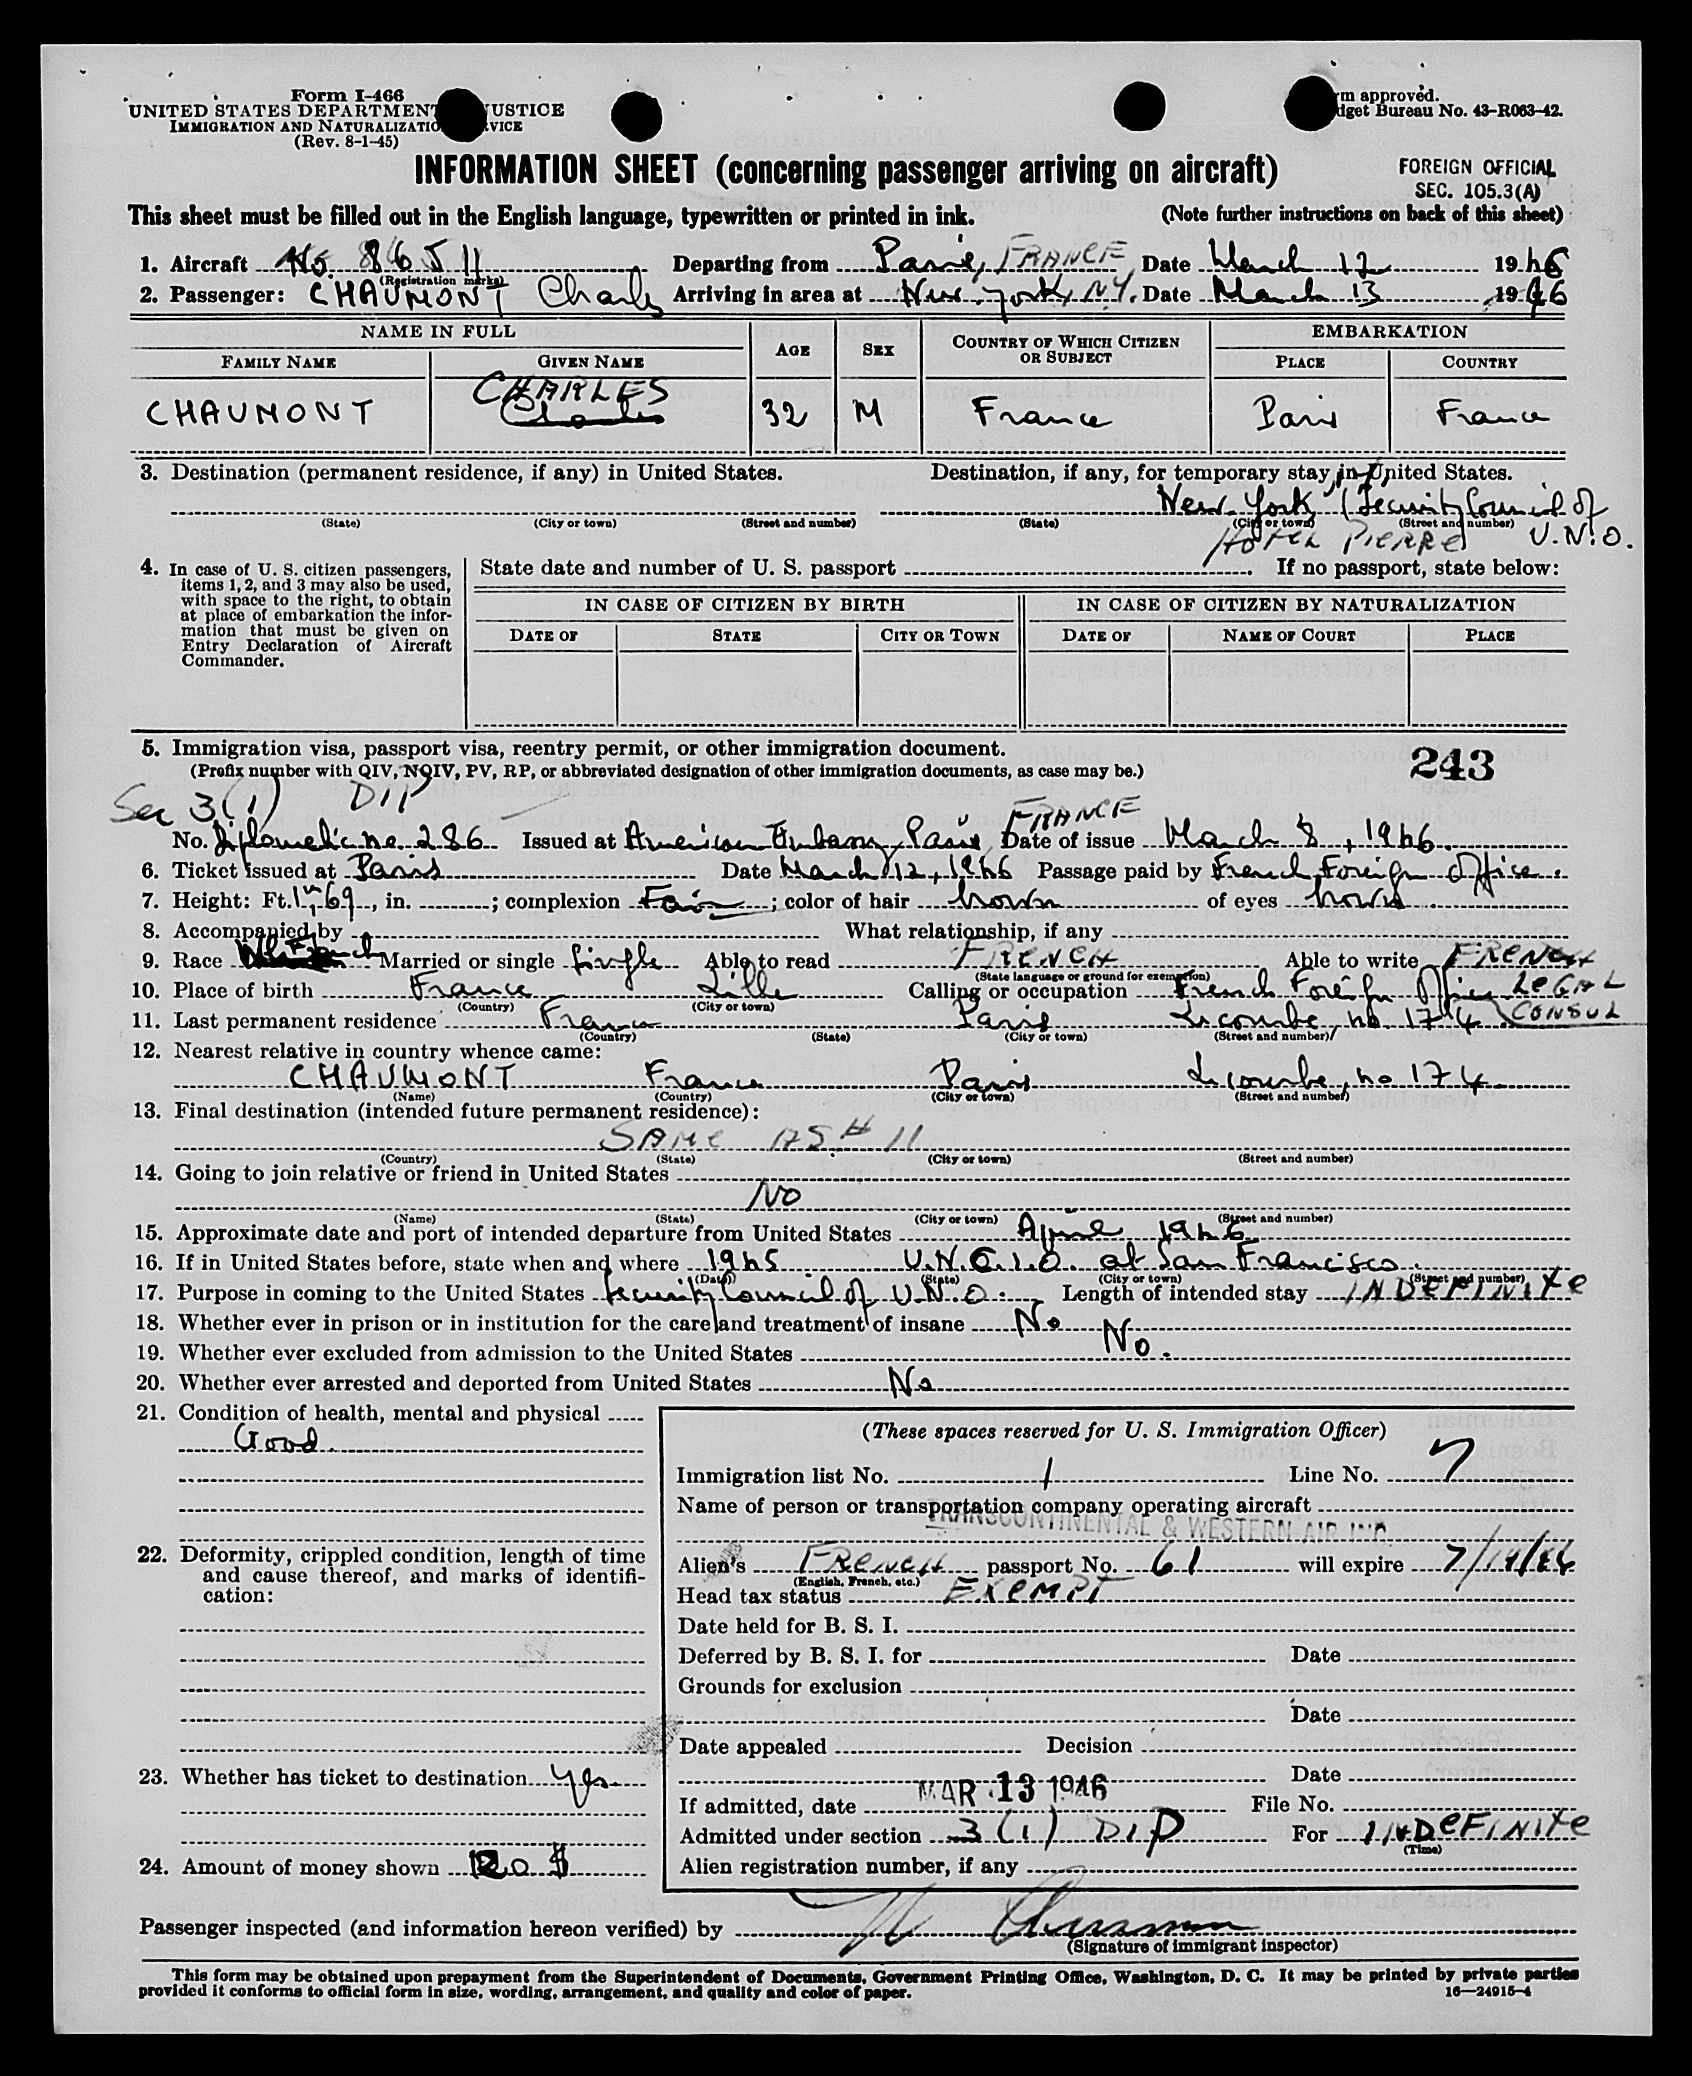 Form I-466
UNITED STATES DEPARTMENT JUSTICE
IMMIGRATION AND NATURALIZATIO VICE
(Rev. 8-1-45)
rm approved.
dget Bureau No. 43-R063-42.
INFORMATION SHEET (concerning passenger arriving on aircraft)
FOREIGN OFFICIAL
SEC. 105.3(A)
This sheet must be filled out in the English language, typewritten or printed in ink.
(Note further instructions on back of this sheet)
1. Aircraft No. 86511 Departing from Paris, FRANCE Date March 12 1946
(Registration marks)
2. Passenger: CHAUMONT Charles Arriving in area at New York, NY. Date March 13 1946
NAME IN FULL
FAMILY NAME GIVEN NAME AGE SEX COUNTRY OF WHICH CITIZEN OR SUBJECT EMBARKATION PLACE COUNTRY
CHARLES
CHAUMONT Charles 32 M France Paris France
3. Destination (permanent residence, if any) in United States. Destination, if any, for temporary stay in United States.
New York (Security Council of
(State) (City or town) (Street and number) (State) (City or town) (Street and number)
HOTEL PIERRE U.N.O.
4. In case of U. S. citizen passengers, items 1, 2, and 3 may also be used, with space to the right, to obtain at place of embarkation the information that must be given on Entry Declaration of Aircraft Commander.
State date and number of U. S. passport If no passport, state below:
IN CASE OF CITIZEN BY BIRTH IN CASE OF CITIZEN BY NATURALIZATION
DATE OF STATE CITY OR TOWN DATE OF NAME OF COURT PLACE
5. Immigration visa, passport visa, reentry permit, or other immigration document.
243
(Prefix number with QIV, NQIV, PV, RP, or abbreviated designation of other immigration documents, as case may be.)
Sec 3(1) DIP FRANCE
No. diplomatic no. 286 Issued at American Embassy, Paris, Date of issue March 8, 1946.
6. Ticket issued at Paris Date March 12, 1946 Passage paid by French Foreign Office.
7. Height: Ft. 1m,69, in. ; complexion Fair ; color of hair brown of eyes brown.
8. Accompanied by What relationship, if any
9. Race French Married or single Single Able to read FRENCH Able to write FRENCH
(State language or ground for exemption)
10. Place of birth France Lille Calling or occupation French Foreign Office LEGAL
(Country) (City or town)
CONSUL
11. Last permanent residence France Paris Lecourbe, no 174
(Country) (State) (City or town) (Street and number)
12. Nearest relative in country whence came:
CHAUMONT France Paris Lecourbe, no 174
(Name) (Country) (City or town) (Street and number)
13. Final destination (intended future permanent residence):
SAME AS # 11
(Country) (State) (City or town) (Street and number)
14. Going to join relative or friend in United States
NO
(Name) (State) (City or town) (Street and number)
15. Approximate date and port of intended departure from United States April 1946
16. If in United States before, state when and where 1945 U.N.C.I.O. at San Francisco.
(Date) (State) (City or town) (Street and number)
17. Purpose in coming to the United States Security Council of U.N.O. Length of intended stay INDEFINITE
18. Whether ever in prison or in institution for the care and treatment of insane No
19. Whether ever excluded from admission to the United States No.
20. Whether ever arrested and deported from United States No
21. Condition of health, mental and physical
Good.
22. Deformity, crippled condition, length of time and cause thereof, and marks of identification:
23. Whether has ticket to destination Yes
24. Amount of money shown 20 $
(These spaces reserved for U. S. Immigration Officer)
Immigration list No. 1 Line No. 7
Name of person or transportation company operating aircraft
TRANSCONTINENTAL & WESTERN AIR INC.
Alien's FRENCH passport No. 61 will expire 7/14/46
(English, French, etc.)
Head tax status EXEMPT
Date held for B. S. I.
Deferred by B. S. I. for Date
Grounds for exclusion
Date
Date appealed Decision
Date
If admitted, date MAR 13 1946 File No.
Admitted under section 3(1) DIP For INDEFINITE
(Time)
Alien registration number, if any
Passenger inspected (and information hereon verified) by
(Signature of immigrant inspector)
This form may be obtained upon prepayment from the Superintendent of Documents, Government Printing Office, Washington, D. C. It may be printed by private parties
provided it conforms to official form in size, wording, arrangement, and quality and color of paper.
16—24915-4